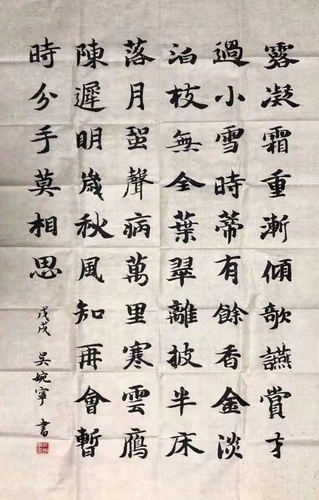 露凝霜重漸傾欹讌賞才
過小雪時蒂有餘香金淡
泊枝無全葉翠離披半床
落月蛩聲病萬里寒雲鴈
陳遲明歲秋風知再會暫
時分手莫相思
戊戌 吳婉寧 書